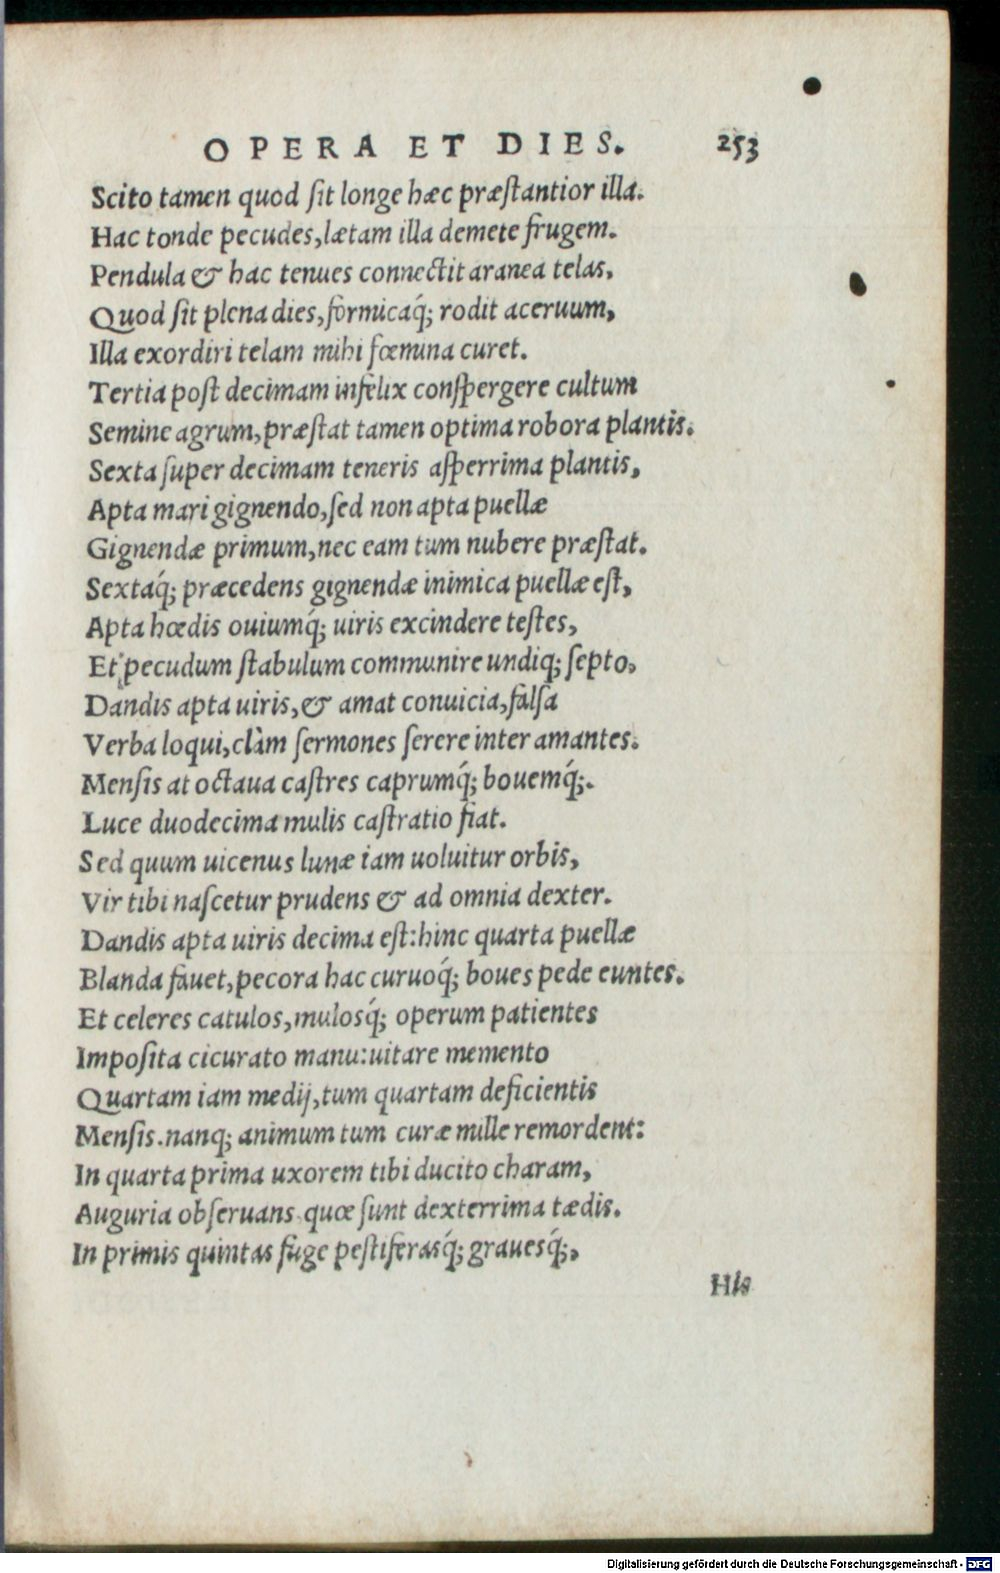 OPERA ET DIES. 253
Scito tamen quod ſit longe hæc præſtantior illa.
Hac tonde pecudes, lætam illa demete frugem.
Pendula & hac tenues connectit aranea telas,
Quod ſit plena dies, formicaq́; rodit aceruum,
Illa exordiri telam mihi fœmina curet.
Tertia poſt decimam infelix conſpergere cultum
Semine agrum, præſtat tamen optima robora plantis.
Sexta ſuper decimam teneris aſperrima plantis,
Apta mari gignendo, ſed non apta puellæ
Gignendæ primum, nec eam tum nubere præſtat.
Sextaq́; præcedens gignendæ inimica puellæ eſt,
Apta hœdis ouiumq́; uiris excindere teſtes,
Et pecudum ſtabulum communire undiq; ſepto,
Dandis apta uiris, & amat conuicia, falſa
Verba loqui, clàm ſermones ſerere inter amantes.
Menſis at octaua caſtres caprumq́; bouemq́;.
Luce duodecima mulis caſtratio fiat.
Sed quum uicenus lunæ iam uoluitur orbis,
Vir tibi naſcetur prudens & ad omnia dexter.
Dandis apta uiris decima eſt: hinc quarta puellæ
Blanda fauet, pecora hac curuoq́; boues pede euntes.
Et celeres catulos, mulosq́; operum patientes
Impoſita cicurato manu: uitare memento
Quartam iam medij, tum quartam deficientis
Menſis. nanq; animum tum curæ mille remordent:
In quarta prima uxorem tibi ducito charam,
Auguria obſeruans quœ ſunt dexterrima tædis.
In primis quintas fuge peſtiferasq́; grauesq́;,
His
Digitalisierung gefördert durch die Deutsche Forschungsgemeinschaft - DFG